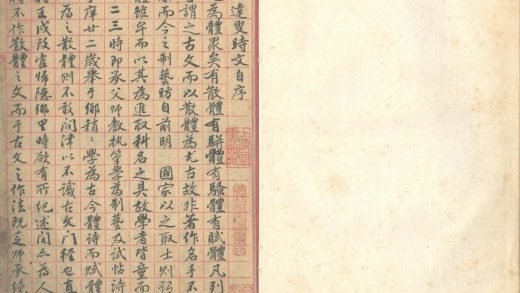 達叟時文自序
為體眾矣有散體有駢體有騷體有賦體凡列
謂之古文而以散體為尤古故非著作名手不
而今之制藝昉自前明 國家以之取士則謂
體雖卑而以其為進取科名之具故學者皆童而
二三時即承父師教執筆學為制藝及試帖詩
庠廿二歲舉于鄉稍〻學為古今體詩而賦體
為之散體則不敢問津以不識古文門徑也直
壬戌改官歸隱鄉里時欲有所紀述間亦為人
得不作散體之文而于古文之作法既乏師承